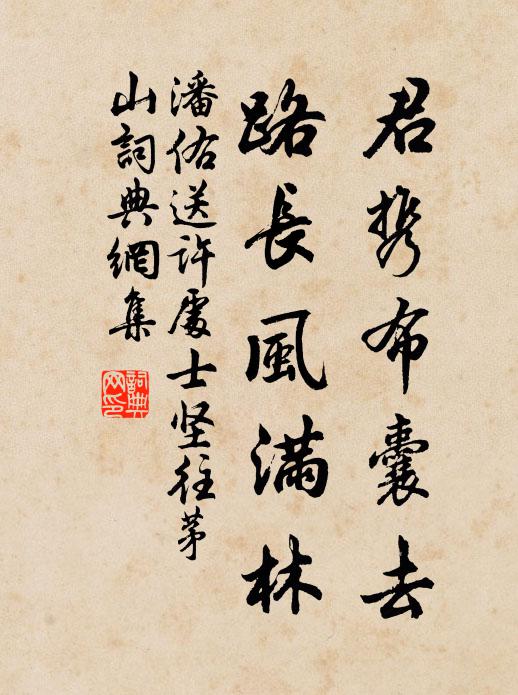 君携布囊去
路長風満林
潘佑送许處士坚往茅
山詞典網集
詞典
网印